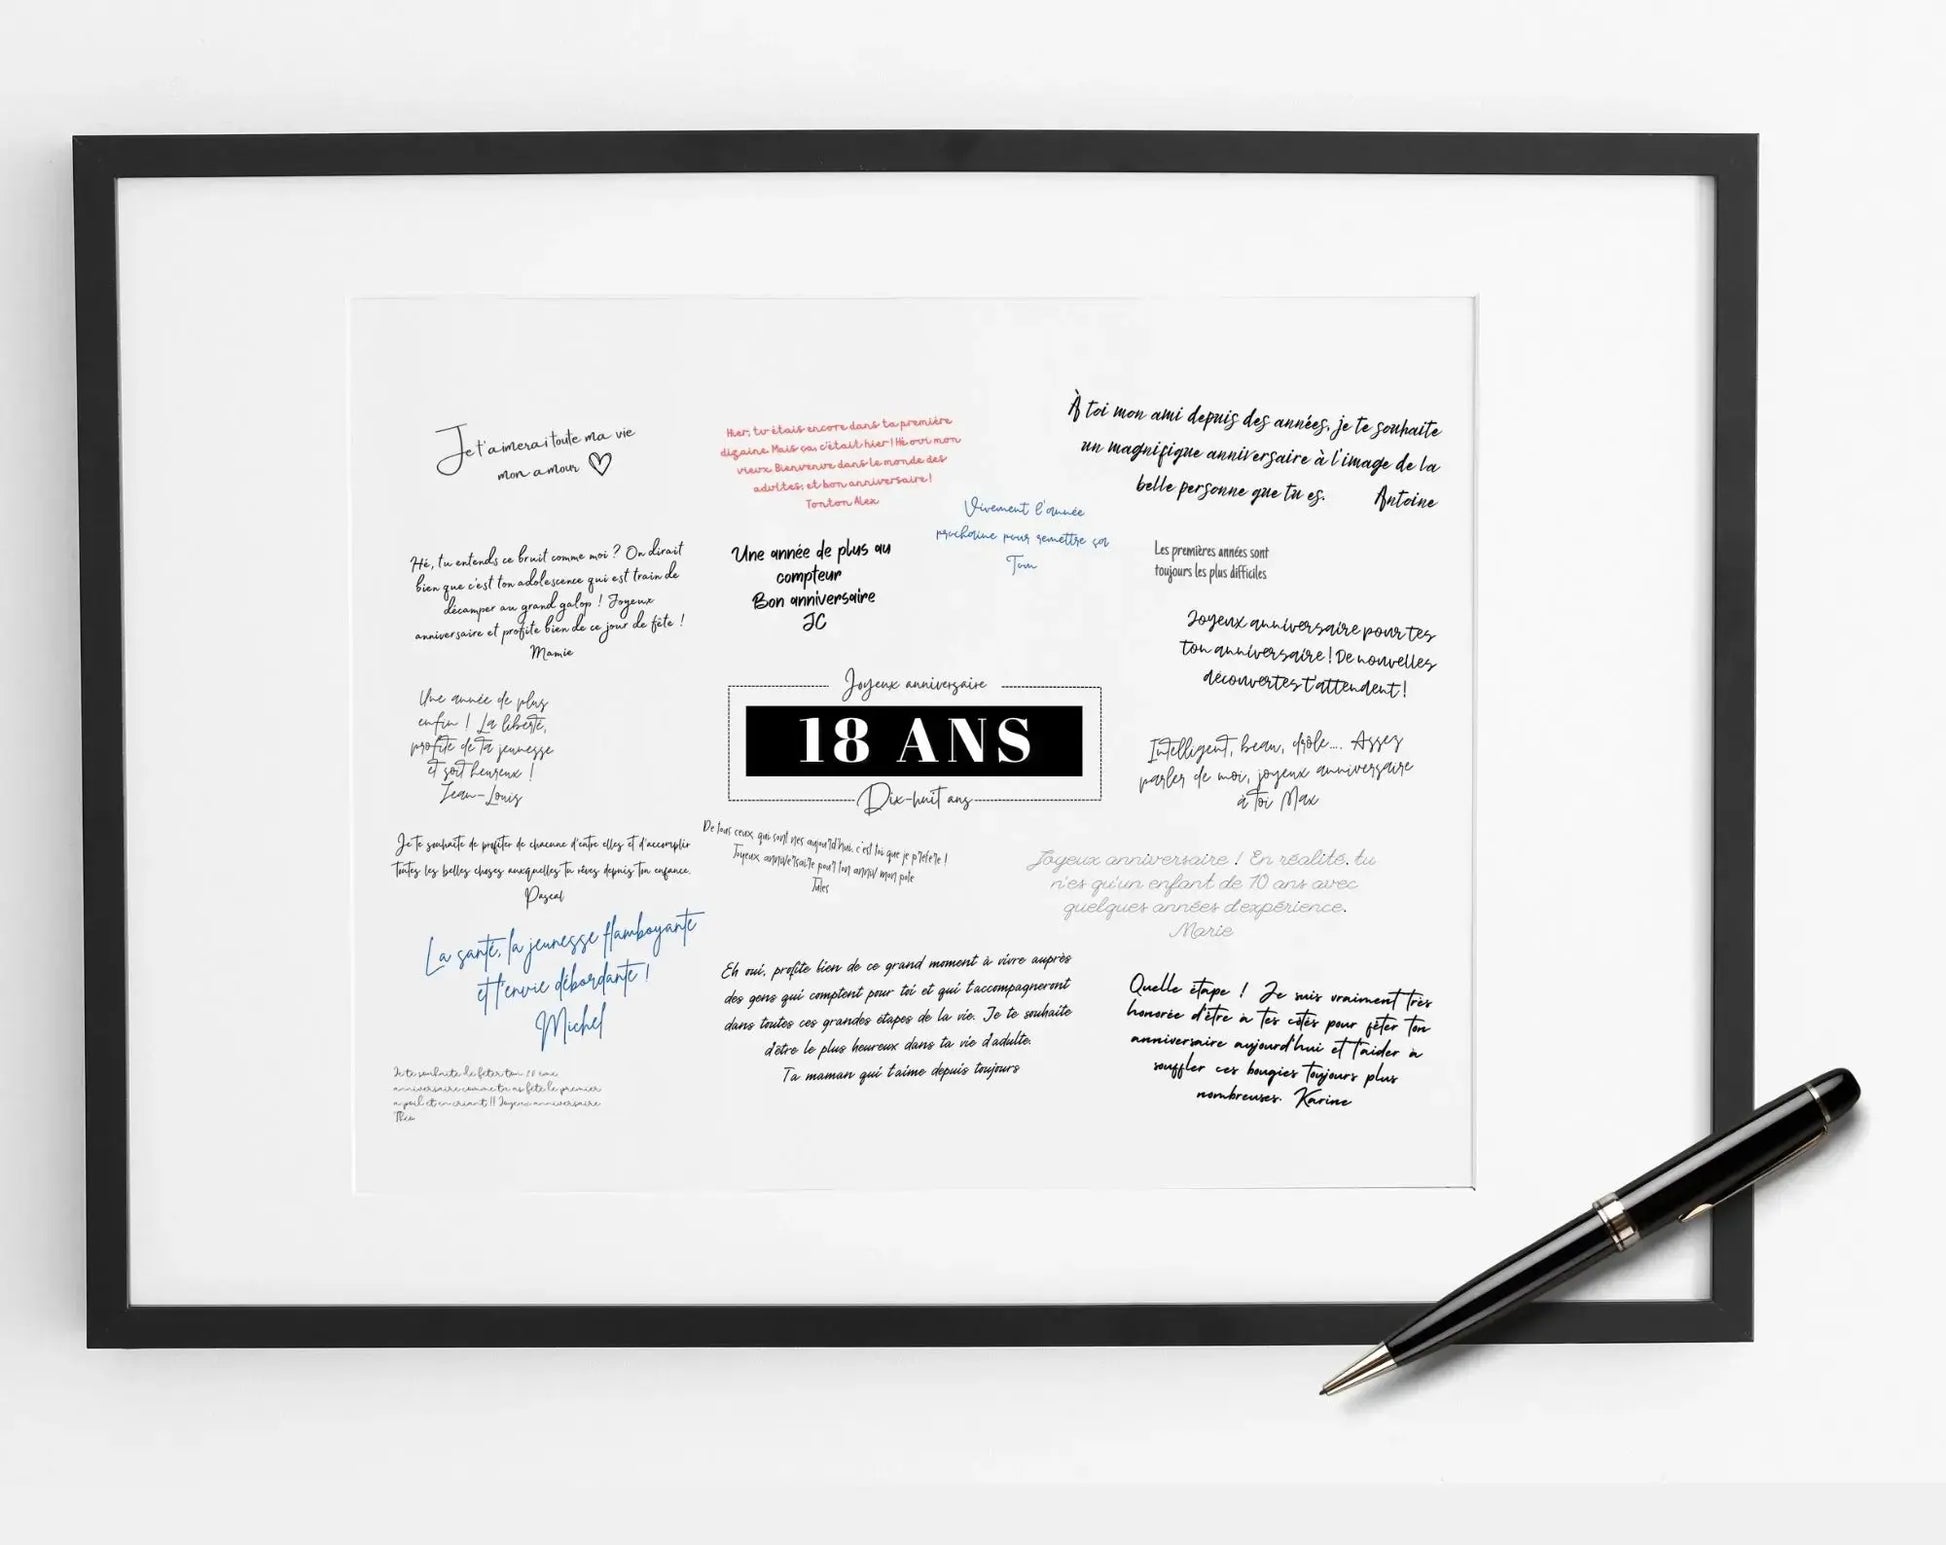 Je t'aimerai toute ma vie
mon amour
Hier, tu étais encore dans ta première
dizaine. Mais ça, c'était hier ! Hé oui mon
vieux. Bienvenue dans le monde des
adultes, et bon anniversaire !
Tonton Alex
À toi mon ami depuis des années, je te souhaite
un magnifique anniversaire à l'image de la
belle personne que tu es. Antoine
Vivement l'année
prochaine pour remettre ça
Tom
Hé, tu entends ce bruit comme moi ? On dirait
bien que c'est ton adolescence qui est train de
décamper au grand galop ! Joyeux
anniversaire et profite bien de ce jour de fête !
Mamie
Une année de plus au
compteur
Bon anniversaire
JC
Les premières années sont
toujours les plus difficiles
Joyeux anniversaire pour tes
ton anniversaire ! De nouvelles
découvertes t'attendent !
Une année de plus
enfin ! La liberté,
profite de ta jeunesse
et soit heureux !
Jean-Louis
Joyeux anniversaire
18 ANS
Dix-huit ans
Intelligent, beau, drôle.... Assez
parler de moi, joyeux anniversaire
à toi Max
Je te souhaite de profiter de chacune d'entre elles et d'accomplir
toutes les belles choses auxquelles tu rêves depuis ton enfance.
Pascal
De tous ceux, qui sont nés aujourd'hui, c'est toi que je préfère !
Joyeux anniversaire pour ton anniv mon pote
Jules
Joyeux anniversaire ! En réalité, tu
n'es qu'un enfant de 10 ans avec
quelques années d'expérience.
Marie
La santé, la jeunesse flamboyante
et l'envie débordante !
Michel
Eh oui, profite bien de ce grand moment à vivre auprès
des gens qui comptent pour toi et qui t'accompagneront
dans toutes ces grandes étapes de la vie. Je te souhaite
d'être le plus heureux dans ta vie d'adulte.
Ta maman qui t'aime depuis toujours
Quelle étape ! Je suis vraiment très
honorée d'être à tes côtés pour fêter ton
anniversaire aujourd'hui et t'aider à
souffler ces bougies toujours plus
nombreuses. Karine
Je te souhaite de fêter ton 20 ème
anniversaire comme tu as fêté le premier
à poil et en criant !! Joyeux anniversaire
Théo